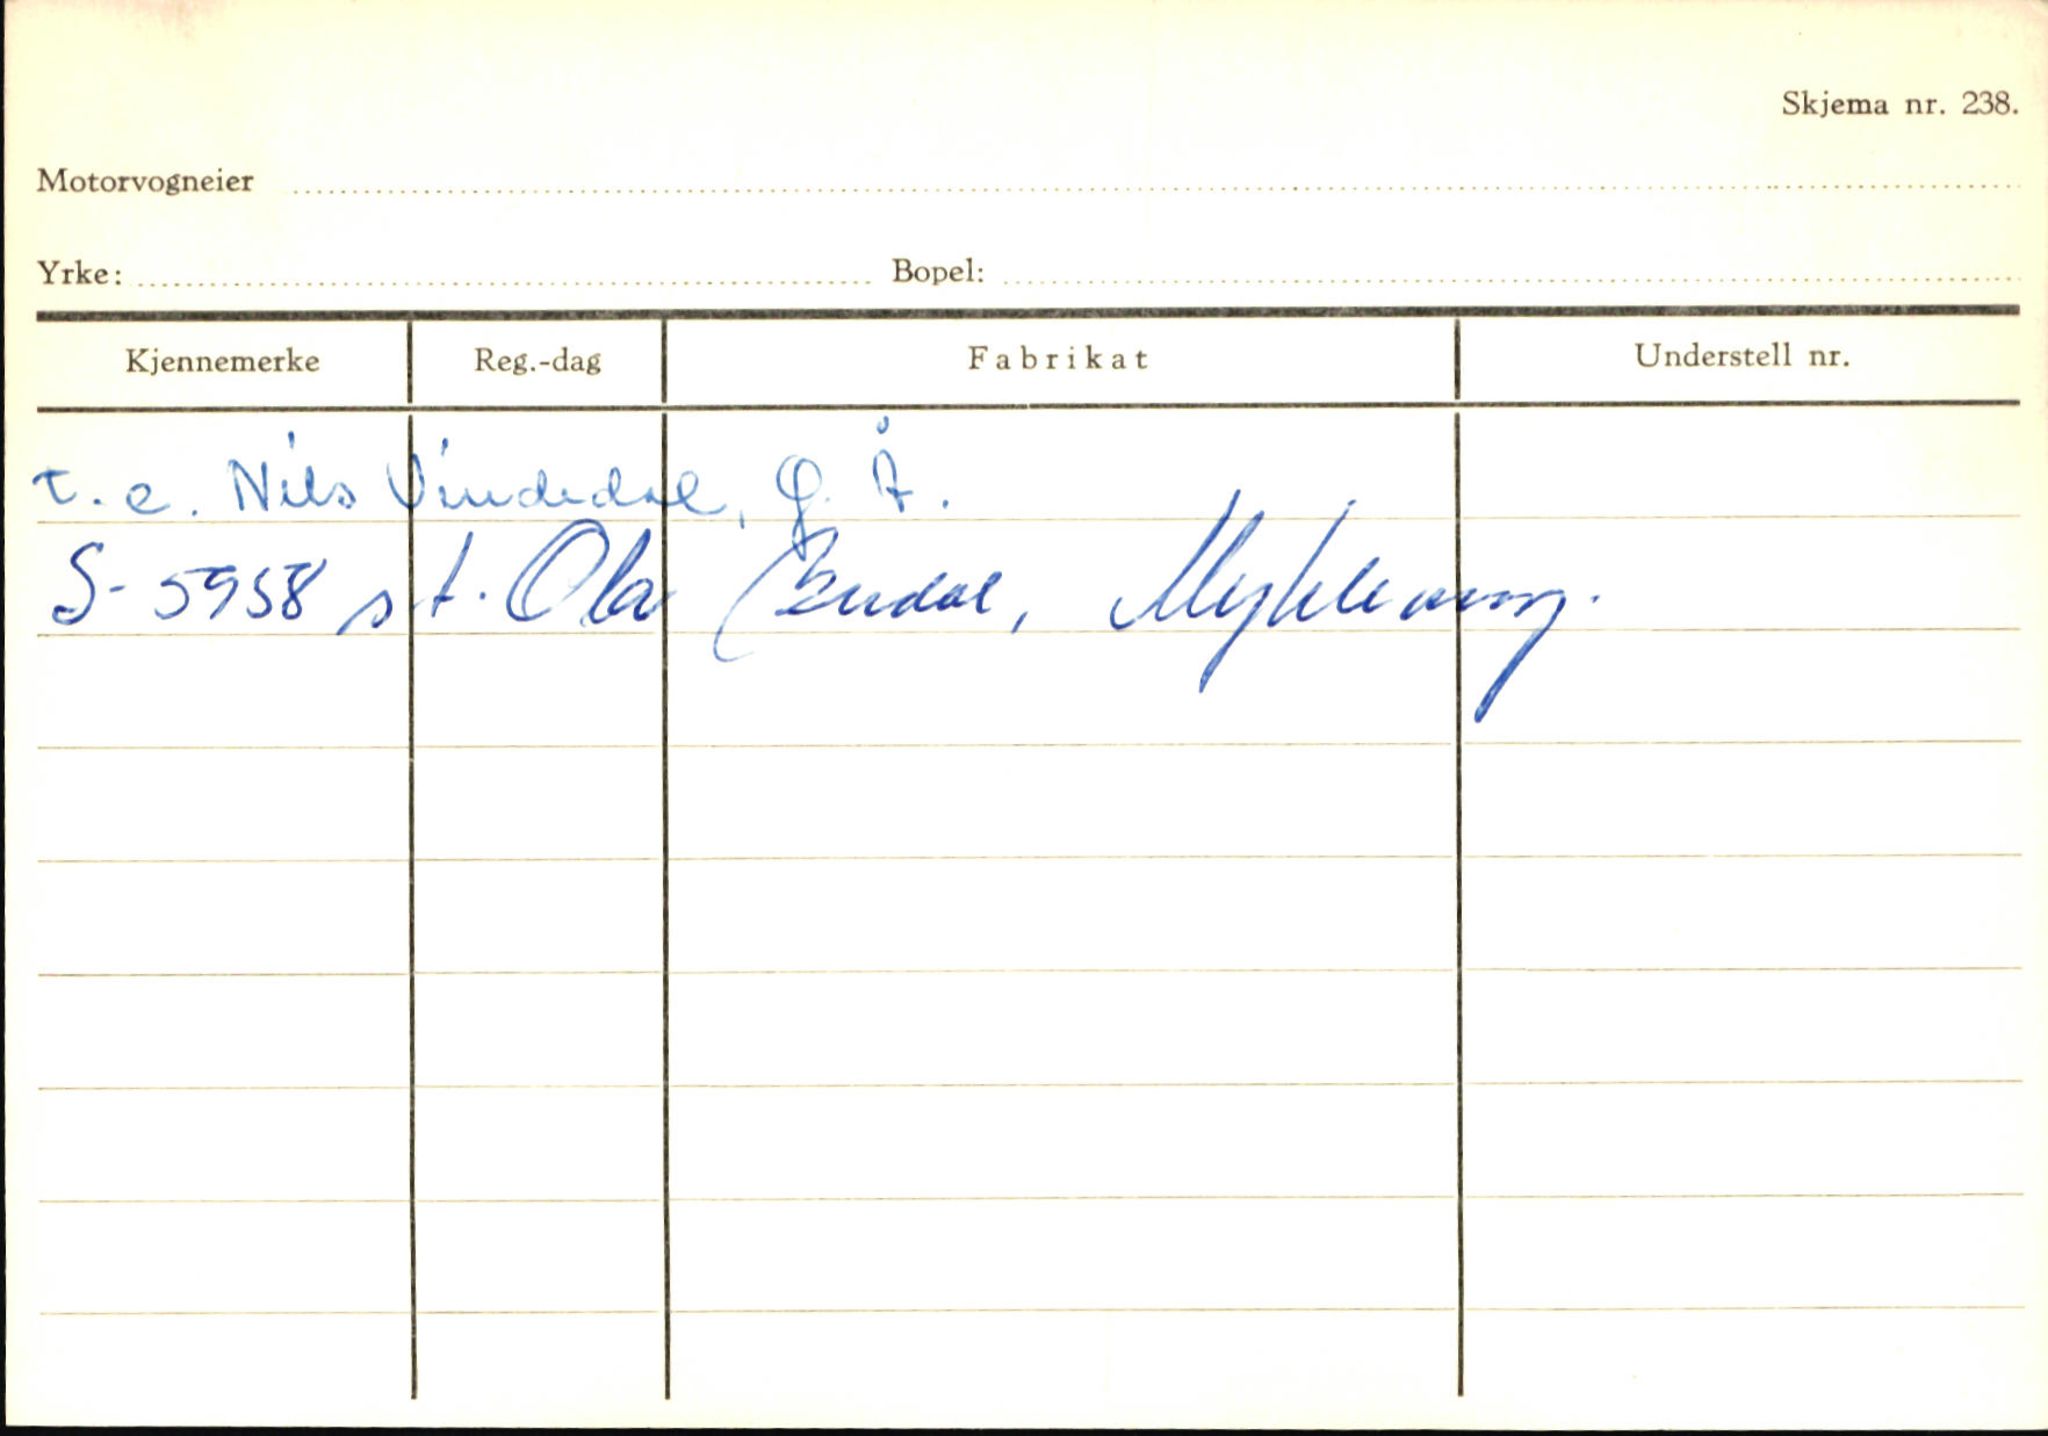 Skjema nr. 238.
Motorvogneier
Yrke: Bopel:
Kjennemerke Reg.-dag Fabrikat Understell nr.
t. e. Nils Vindedal, Ø. Å.
S-5958 s t. Ola Bendal,